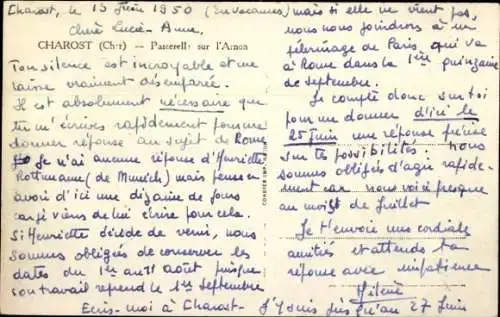 Charost, le 15 Juin 1950 (En vacances)
Chère Lucie-Anne,
CHAROST (Cher) - Passerelle sur l'Arnon
Ton silence est incroyable et me
laisse vraiment désemparée.
Il est absolument nécessaire que
tu m'écrives rapidement pour me
donner réponse au sujet de Rome
Je n'ai aucune réponse d'Henriette
Rothmane (de Munich) mais pense en
avoir d'ici une dizaine de jours
car je viens de lui écrire pour cela.
Si Henriette décide de venir, nous
sommes obligées de conserver les
dates du 1er au 31 août puisque
son travail reprend le 1er Septembre
mais si elle ne vient pas,
nous nous joindrons à un
pèlerinage de Paris qui va
à Rome dans la 1ère quinzaine
de Septembre.
Je compte donc sur toi
pour me donner d'ici le
25 Juin une réponse précise
sur tes possibilités. Nous
sommes obligées d'agir rapide-
ment car nous voici presque
au mois de Juillet
Je t'envoie mes cordiales
amitiés et attends ta
réponse avec impatience
Ecris-moi à Charost - J'y suis jusqu'au 27 Juin